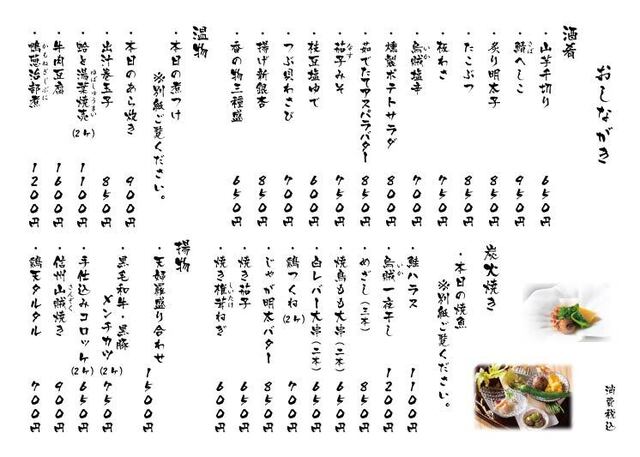 おしながき
酒肴
・山芋千切り 650円
・鯖へしこ 950円
さば
・炙り明太子 850円
・たこぶつ 850円
・板わさ 700円
・烏賊塩辛 700円
いか
・燻製ポテトサラダ 800円
・茹でたてアスパラバター 850円
・茄子みそ 750円
なす
・枝豆塩ゆで 600円
・つぶ貝わさび 700円
・揚げ新銀杏 850円
・香の物三種盛 650円
温物
・本日の煮つけ
※別紙ご覧ください。
・本日のあら炊き 900円
・出汁巻玉子 850円
・蛤と湯葉焼売(2ヶ) 1100円
ゆばしゅうまい
・牛肉豆腐 1600円
・鴨葱治部煮 1200円
かもねぎじぶに
炭火焼き
・本日の焼魚
※別紙ご覧ください。
・鮭ハラス 1100円
・烏賊一夜干し 1200円
いか
・めざし(三本) 850円
・焼鳥もも大串(二本) 650円
・白レバー大串(二本) 650円
・鶏つくね(2ヶ) 700円
・じゃが明太バター 850円
・焼き茄子 600円
・焼き椎茸ねぎ 600円
しいたけ
揚物
・天婦羅盛り合わせ 1500円
・黒毛和牛・黒豚
メンチカツ(2ヶ) 750円
・手仕込みコロッケ(2ヶ) 650円
・信州山賊焼き 900円
さんぞく
・鶏天タルタル 700円
消費税込